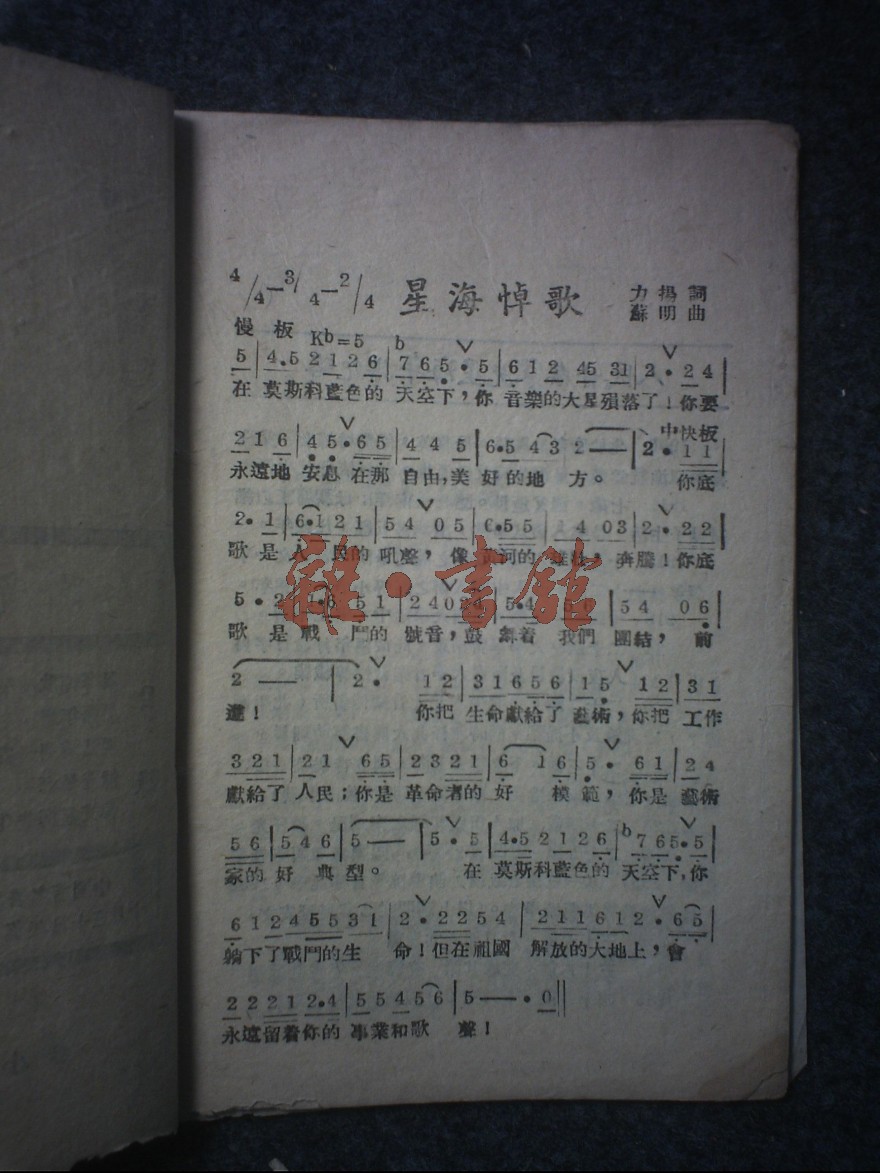 4/4—3/4—2/4 星海悼歌 力揚詞
慢板 Kb=5 蘇明曲
5|4.5 2 1 2 6|b7 6 5•5|6 1 2 45 31|2•2 4|
在 莫斯科藍色的 天空下,你 音樂的大星殞落了!你要
中快板
2 1 6|4 5•6 5|4 4 5|6•5 4 3 2—|2•1 1
永遠地 安息 在那 自由,美 好的地 方。 你底
2•1|6•1 2 1|5 4 0 5|6•5 5 2 4 0 3|2•2 2
歌 是 人 民的 吼聲,像 黃河的 奔騰!你底
5•2|1•6 5 1|2 4 0 2 4|5•4|5 4 0 6
歌 是 戰 鬥的 號音,鼓 舞着 我們 團結, 前
2——|2• 1 2|3 1 6 5 6|1 5 1 2|3 1
進! 你把 生命獻給了 藝術,你把 工作
3 2 1|2 1 6 5|2 3 2 1|6 1 6|5•6 1|2 4
獻給了 人民;你是 革命者的 好 模範,你是 藝術
5 6|5 4 6|5——|5•5|4•5 2 1 2 6|b7 6 5•5|
家的 好 典型。 在 莫斯科藍色的 天空下,你
6 1 2 4 5 5 3 1|2•2 2 5 4|2 1 1 6 1 2•6 5|
躺下了戰鬥的生 命!但在祖國 解放的大地上,會
2 2 2 1 2•4|5 5 4 5 6|5——•0||
永遠留着你的 事業和歌 聲!
雜•書館